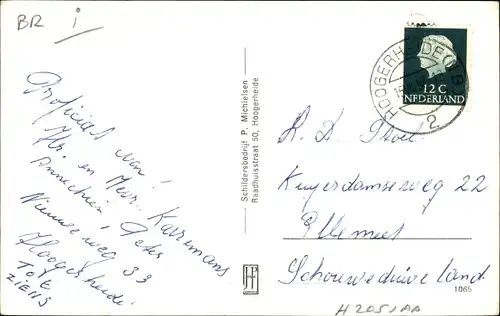 BR i
Proficiat van!
Hr. en Mevr. Karremans
Annechien, Peter
Nieuweweg 33
Hoogerheide.
Tot
ZIENS
Schildersbedrijf P. Michielsen
Raadhuisstraat 50, Hoogerheide
HOOGERHEIDE (N B)
2
12 C
NEDERLAND
JHP
Kuyerdamseweg 22
Ellemeet
Schouwe duive land
1065
H2051AA